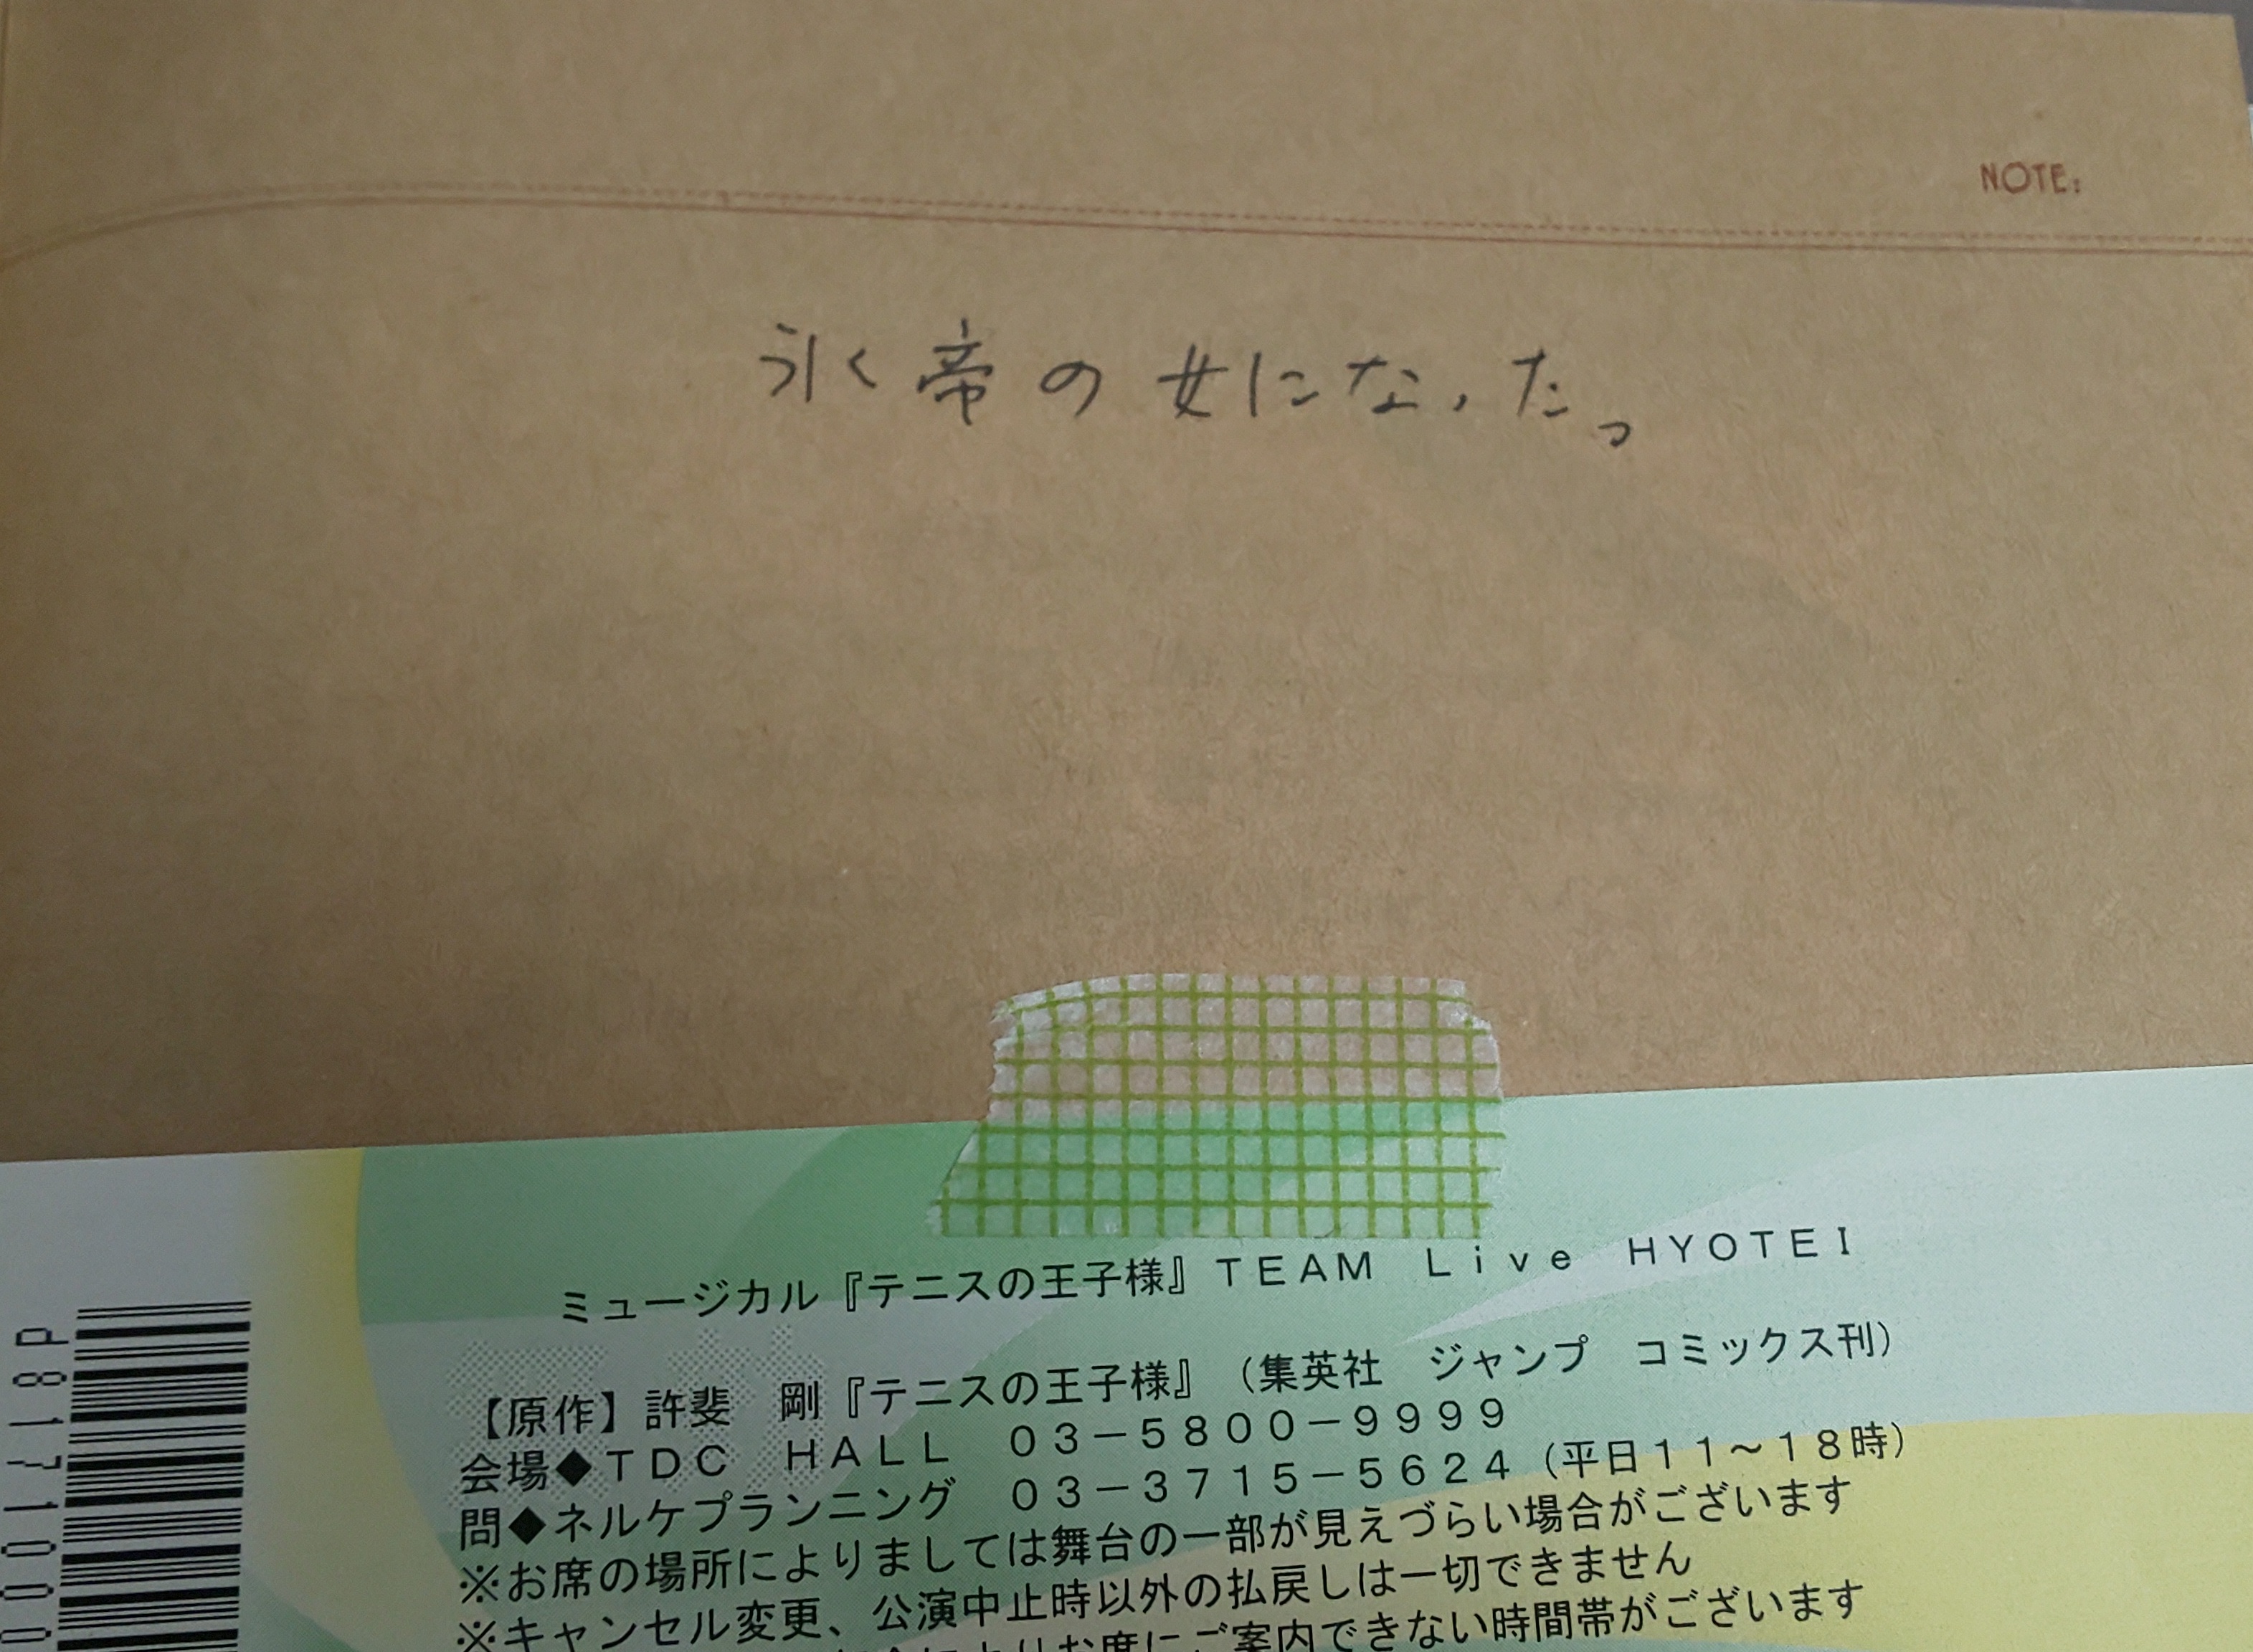 NOTE:
氷帝の女になった。
ミュージカル『テニスの王子様』TEAM Live HYOTEI
【原作】許斐 剛『テニスの王子様』(集英社 ジャンプ コミックス刊)
会場◆TDC HALL 03-5800-9999
問◆ネルケプランニング 03-3715-5624(平日11~18時)
※お席の場所によりましては舞台の一部が見えづらい場合がございます
※キャンセル変更、公演中止時以外の払戻しは一切できません
お席にご案内できない時間帯がございます